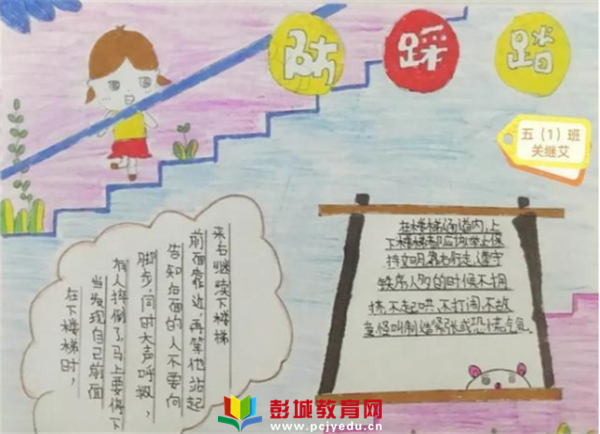 防踩踏
五（1）班
关继艾
在下楼梯时，
当发现自己前面
有人摔倒了，马上要停下
脚步，同时大声呼救，
告知后面的人不要向
前面靠近，再等他站起
来右继续下楼梯
在楼梯通道内，上
下楼梯都应该举止保
持文明，靠右行走，遵守
秩序，人多的时候不拥
挤、不起哄、不打闹、不故
意怪叫制造紧张或恐慌气氛。
彭城教育网
www.pcjyedu.cn